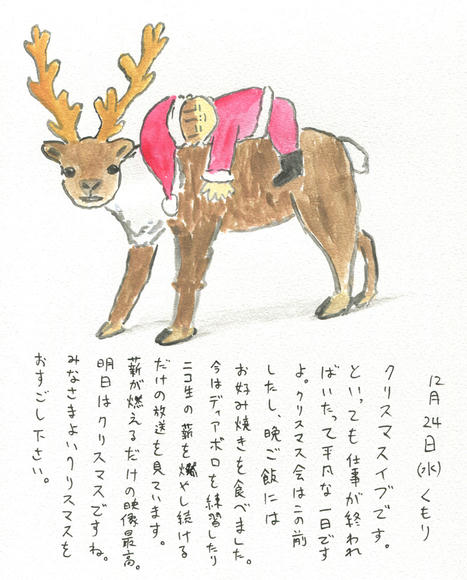 12月24日(水)くもり
クリスマスイブです。
といっても仕事が終われ
ばいたって平凡な一日です
よ。クリスマス会はこの前
したし、晩ご飯には
お好み焼きを食べました。
今はディアボロを練習したり
ニコ生の薪を燃やし続ける
だけの放送を見ています。
薪が燃えるだけの映像最高。
明日はクリスマスですね。
みなさまよいクリスマスを
おすごし下さい。